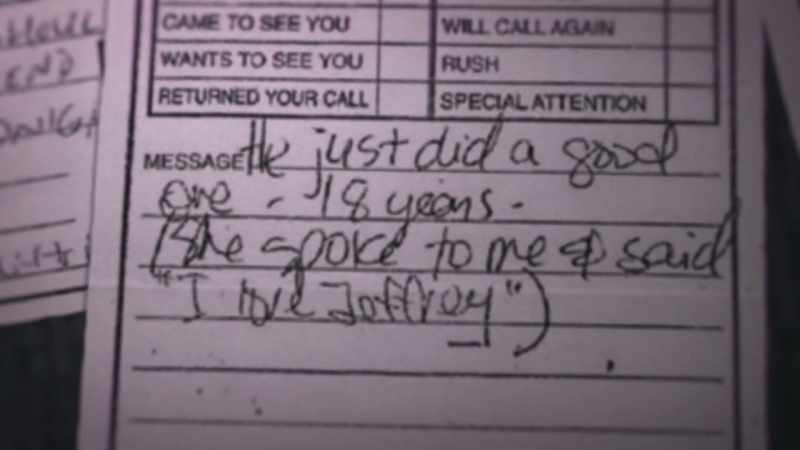 CAME TO SEE YOU WILL CALL AGAIN
WANTS TO SEE YOU RUSH
RETURNED YOUR CALL SPECIAL ATTENTION
END
MESSAGE He just did a good
one - 18 years -
(She spoke to me & said
"I love Jeffrey")